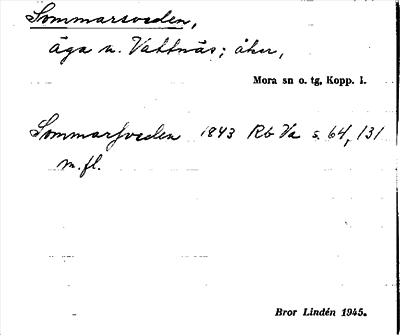 Sommarsveden,
äga n. Vattnäs; åker,
Mora sn o. tg, Kopp. l.
Sommarsveden 1843 Rb Va s. 64, 131
m.fl.
Bror Lindén 1945.